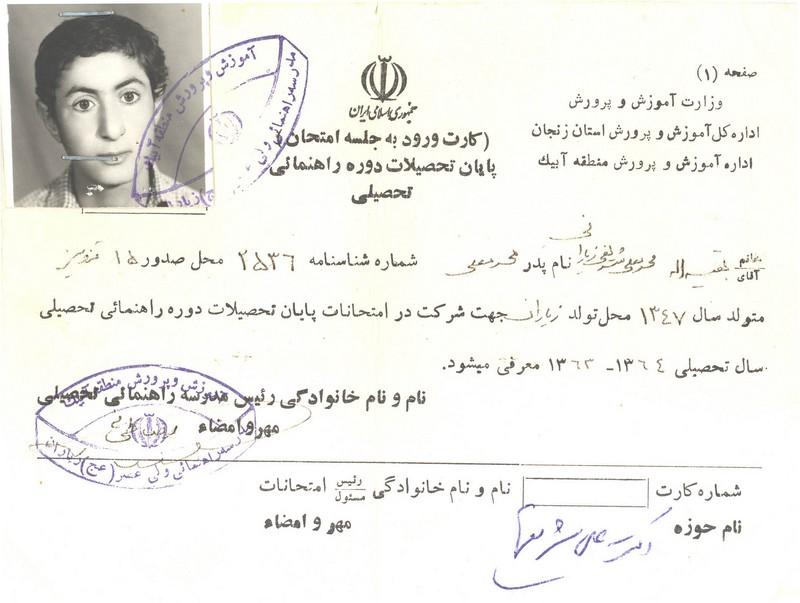 صفحه (۱)
وزارت آموزش و پرورش
اداره کل آموزش و پرورش استان زنجان
اداره آموزش و پرورش منطقه آبیك
جمهوری اسلامی ایران
(کارت ورود به جلسه امتحان
پایان تحصیلات دوره راهنمائی
تحصیلی
آموزش و پرورش منطقه آبیك
مدرسه راهنمائی ولی عصر (عج) زیاران
خانم آقای بقیه اله نام پدر محمدعلی شماره شناسنامه ۲۵۳۶ محل صدور ۱۵ قزوین
متولد سال ۱۳۴۷ محل تولد زیاران جهت شرکت در امتحانات پایان تحصیلات دوره راهنمائی تحصیلی
سال تحصیلی ۱۳۶۴ - ۱۳۶۳ معرفی میشود.
نام و نام خانوادگی رئیس مدرسه راهنمائی تحصیلی
مهر و امضاء
آموزش و پرورش منطقه آبیك
مدرسه راهنمائی ولی عصر (عج) زیاران
شماره کارت نام و نام خانوادگی رئیس مسئول امتحانات
نام حوزه مهر و امضاء